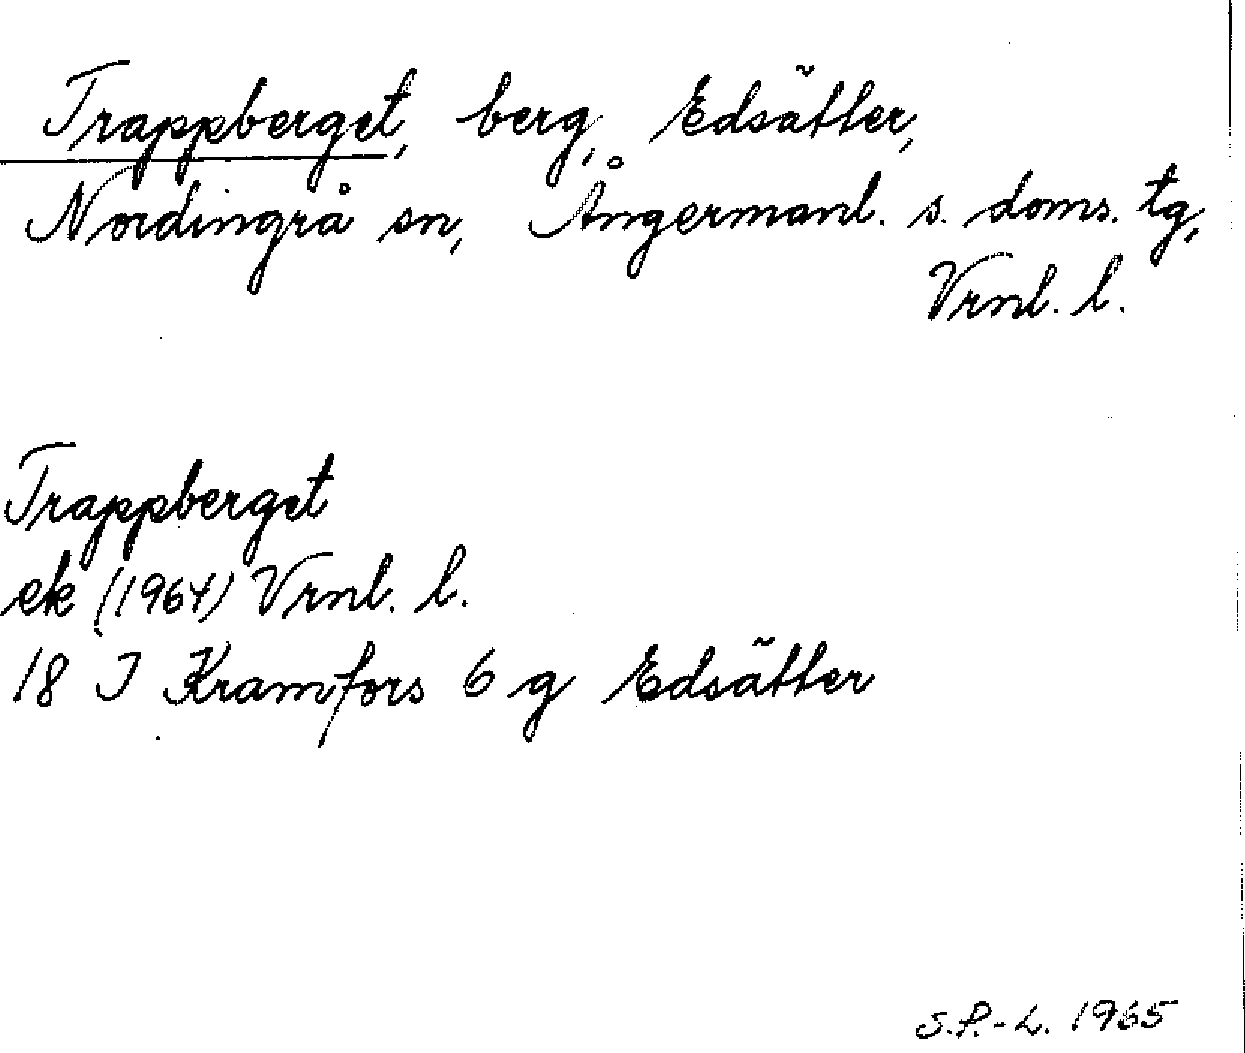 Trappberget, berg, Edsätter,
Nordingrå sn, Ångermanl. s. doms. tg,
Vrnl. l.
Trappberget
ek (1964) Vrnl. l.
18 J Kramfors 6 g Edsätter
S.P.-L. 1965